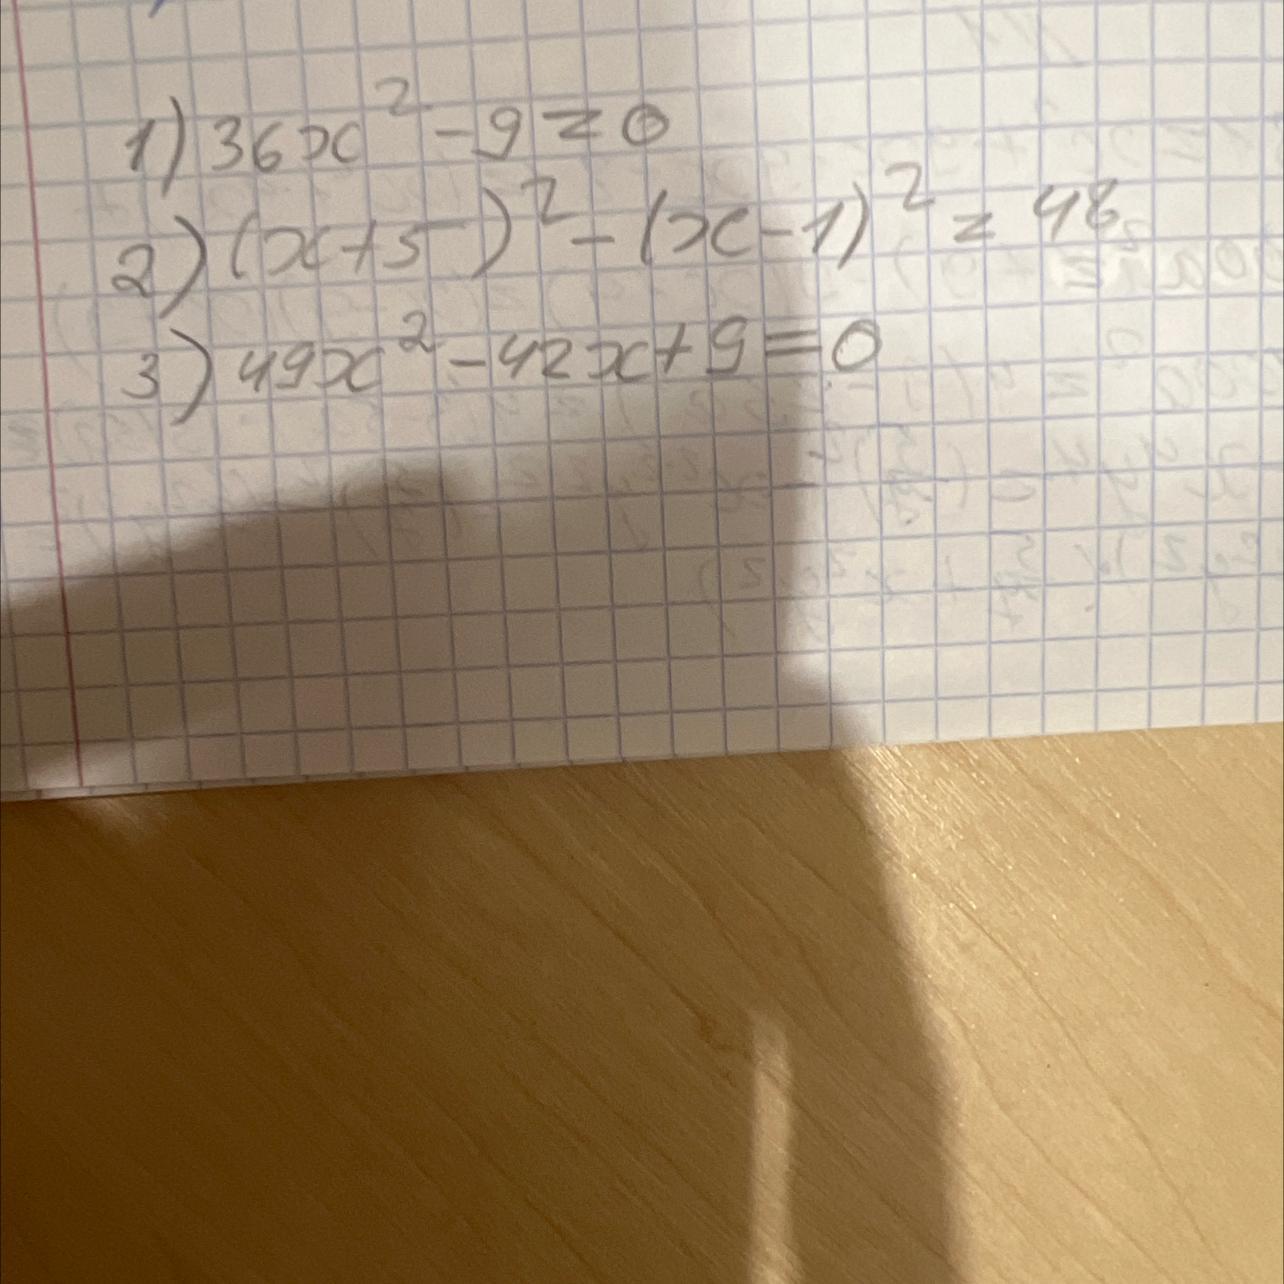 1) 36x² - 9 = 0
2) (x+5)² - (x-1)² = 48
3) 49x² - 42x + 9 = 0